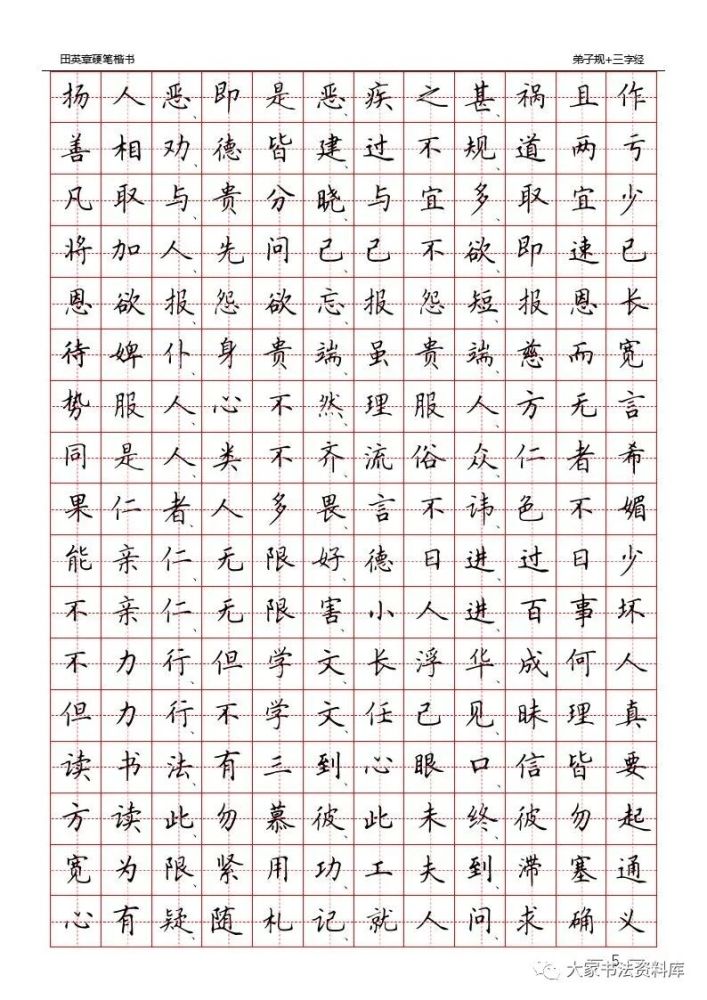 田英章硬笔楷书 弟子规+三字经
扬人恶、即是恶、疾之甚、祸且作
善相劝、德皆建、过不规、道两亏
凡取与、贵分晓、与宜多、取宜少
将加人、先问己、己不欲、即速已
恩欲报、怨欲忘、报怨短、报恩长
待婢仆、身贵端、虽贵端、慈而宽
势服人、心不然、理服人、方无言
同是人、类不齐、流俗众、仁者希
果仁者、人多畏、言不讳、色不媚
能亲仁、无限好、德日进、过日少
不亲仁、无限害、小人进、百事坏
不力行、但学文、长浮华、成何人
但力行、不学文、任己见、昧理真
读书法、有三到、心眼口、信皆要
方读此、勿慕彼、此未终、彼勿起
宽为限、紧用功、工夫到、滞塞通
心有疑、随札记、就人问、求确义
— 5 —
大家书法资料库